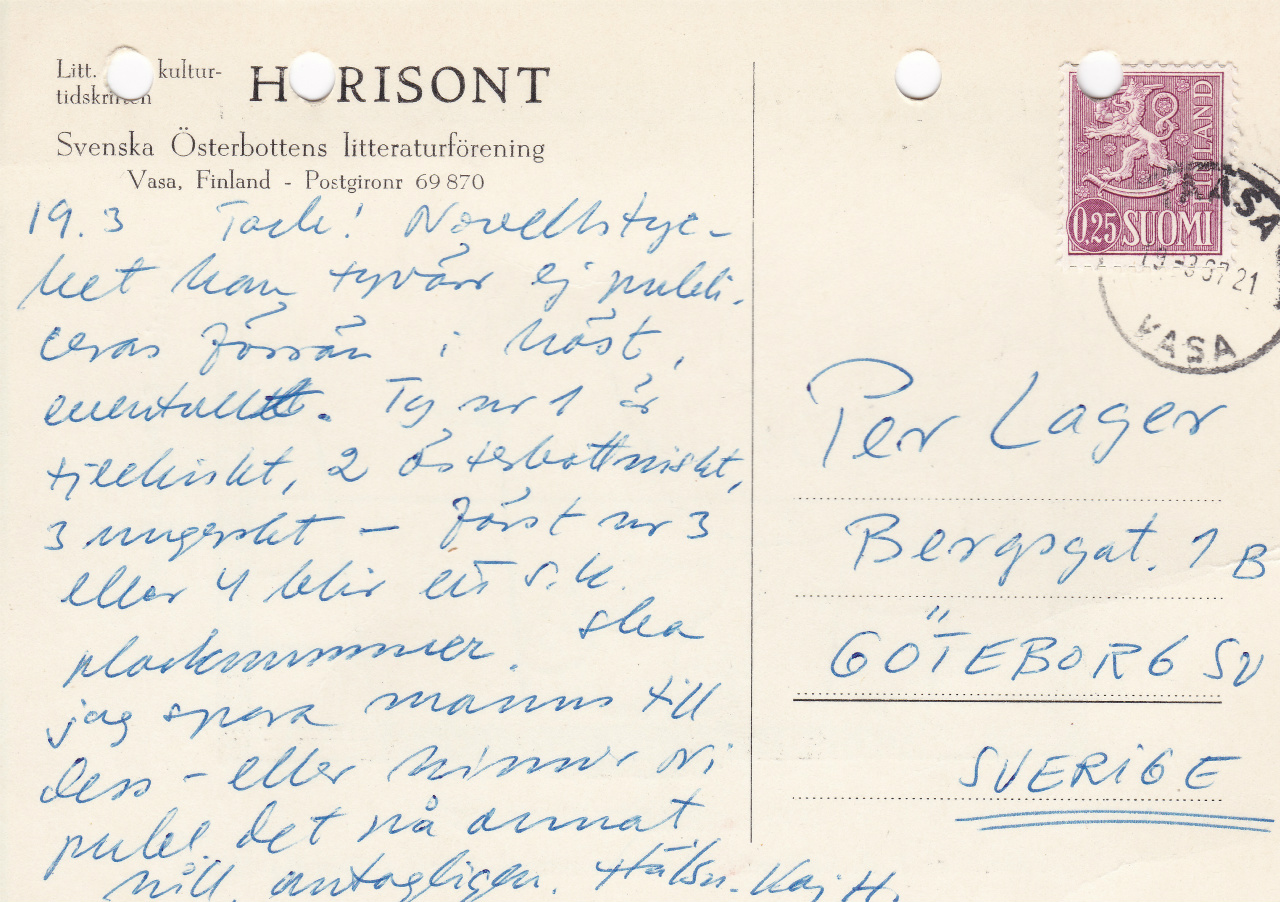 Litt. kultur-
tidskriften
HORISONT
Svenska Österbottens litteraturförening
Vasa, Finland - Postgironr 69 870
19.3 Tack! Novellstyc-
ket kan tyvärr ej publi-
ceras förrän i höst,
eventuellt. Ty nr 1 är
tjeckiskt, 2 österbottniskt,
3 ungerskt – först nr 3
eller 4 blir ett s.k.
plocknummer. Ska
jag spara manus till
dess – eller hinner Ni
publ. det på annat
håll, antagligen. Hälsn. Kaj H.
FINLAND
0,25 SUOMI
VASA
19-3 67 21
VASA
Per Lager
Bergsgat. 1 B
GÖTEBORG SV
SVERIGE